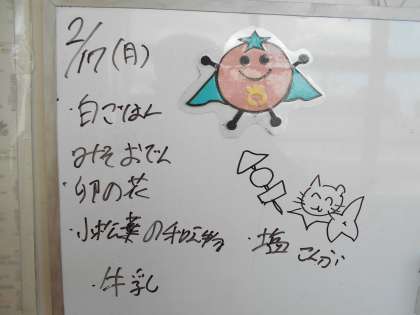 2/17(月)
・白ごはん
みそおでん
・卯の花
・小松菜の和え物
・塩こんぶ
・牛乳